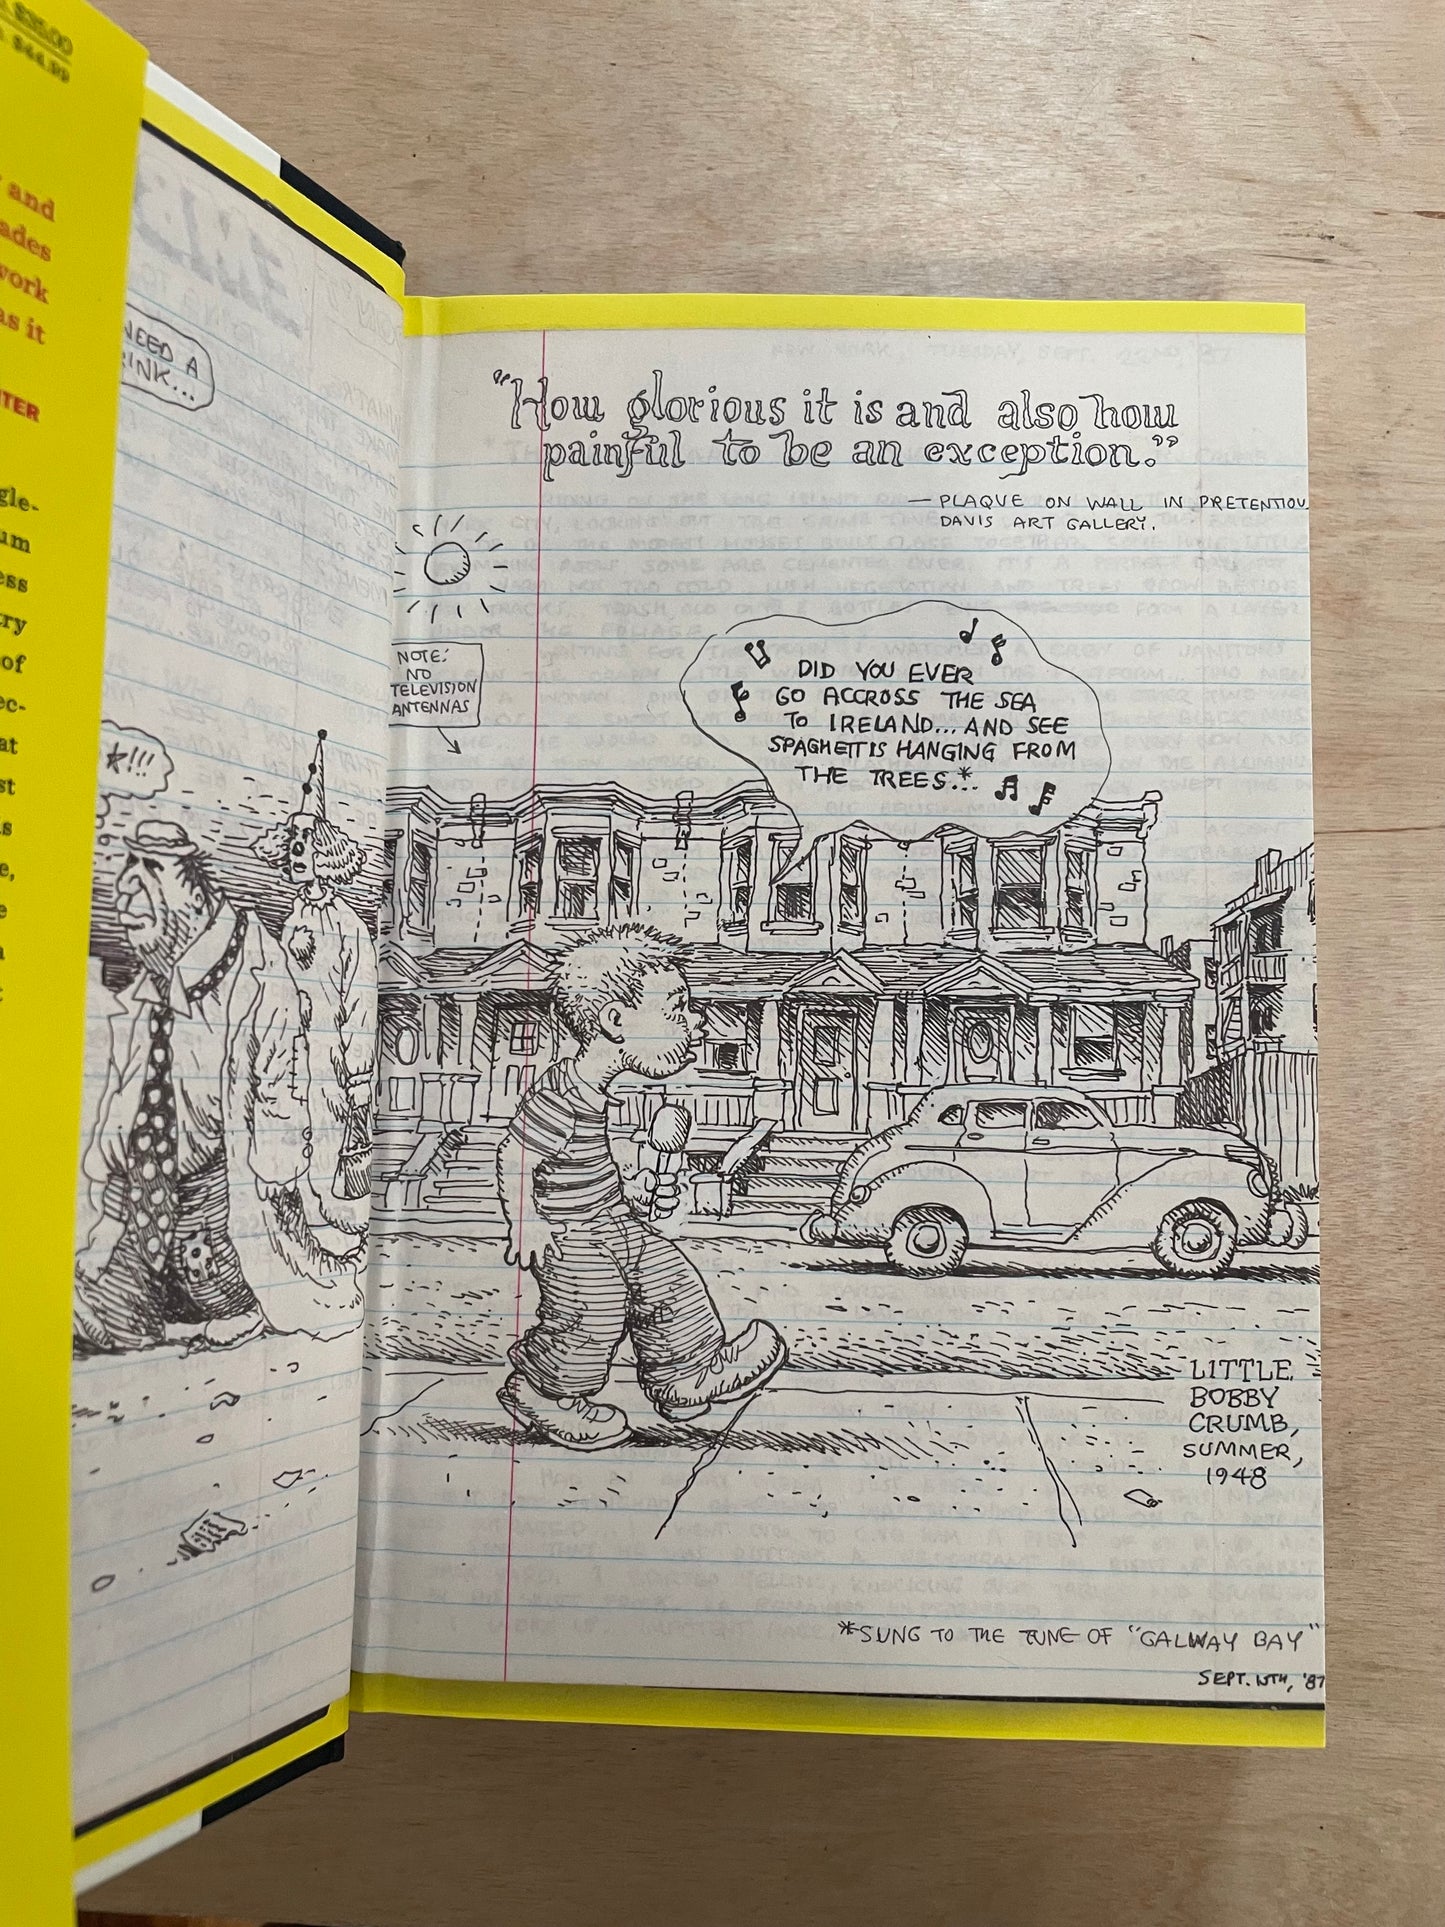 $35.00
$44.99
and
ades
work
as it
NTER
gle-
um
ess
try
of
ec-
at
st
s
e,
e
a
t
NEED A
INK...
*!!!
"How glorious it is and also how
painful to be an exception."
— PLAQUE ON WALL IN PRETENTIOU
DAVIS ART GALLERY.
NOTE:
NO
TELEVISION
ANTENNAS
DID YOU EVER
GO ACCROSS THE SEA
TO IRELAND... AND SEE
SPAGHETTIS HANGING FROM
THE TREES...*
LITTLE
BOBBY
CRUMB,
SUMMER,
1948
*SUNG TO THE TUNE OF "GALWAY BAY"
SEPT. 15TH, '87